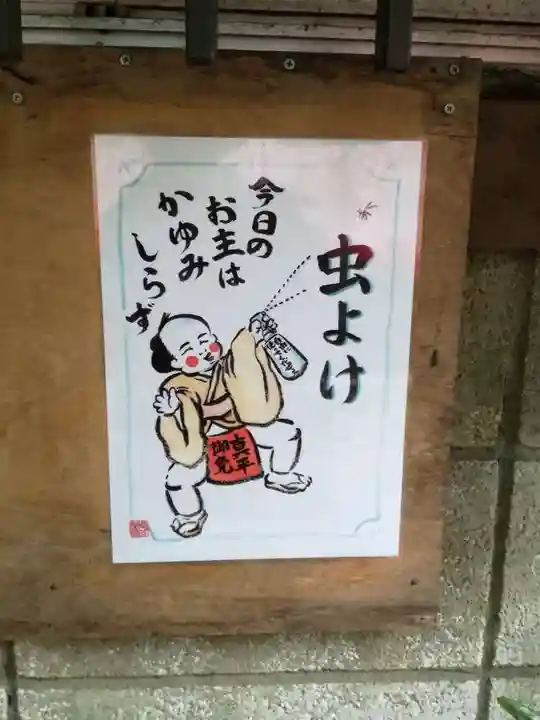 虫よけ
今日の
お主は
かゆみ
しらず
真平
御免